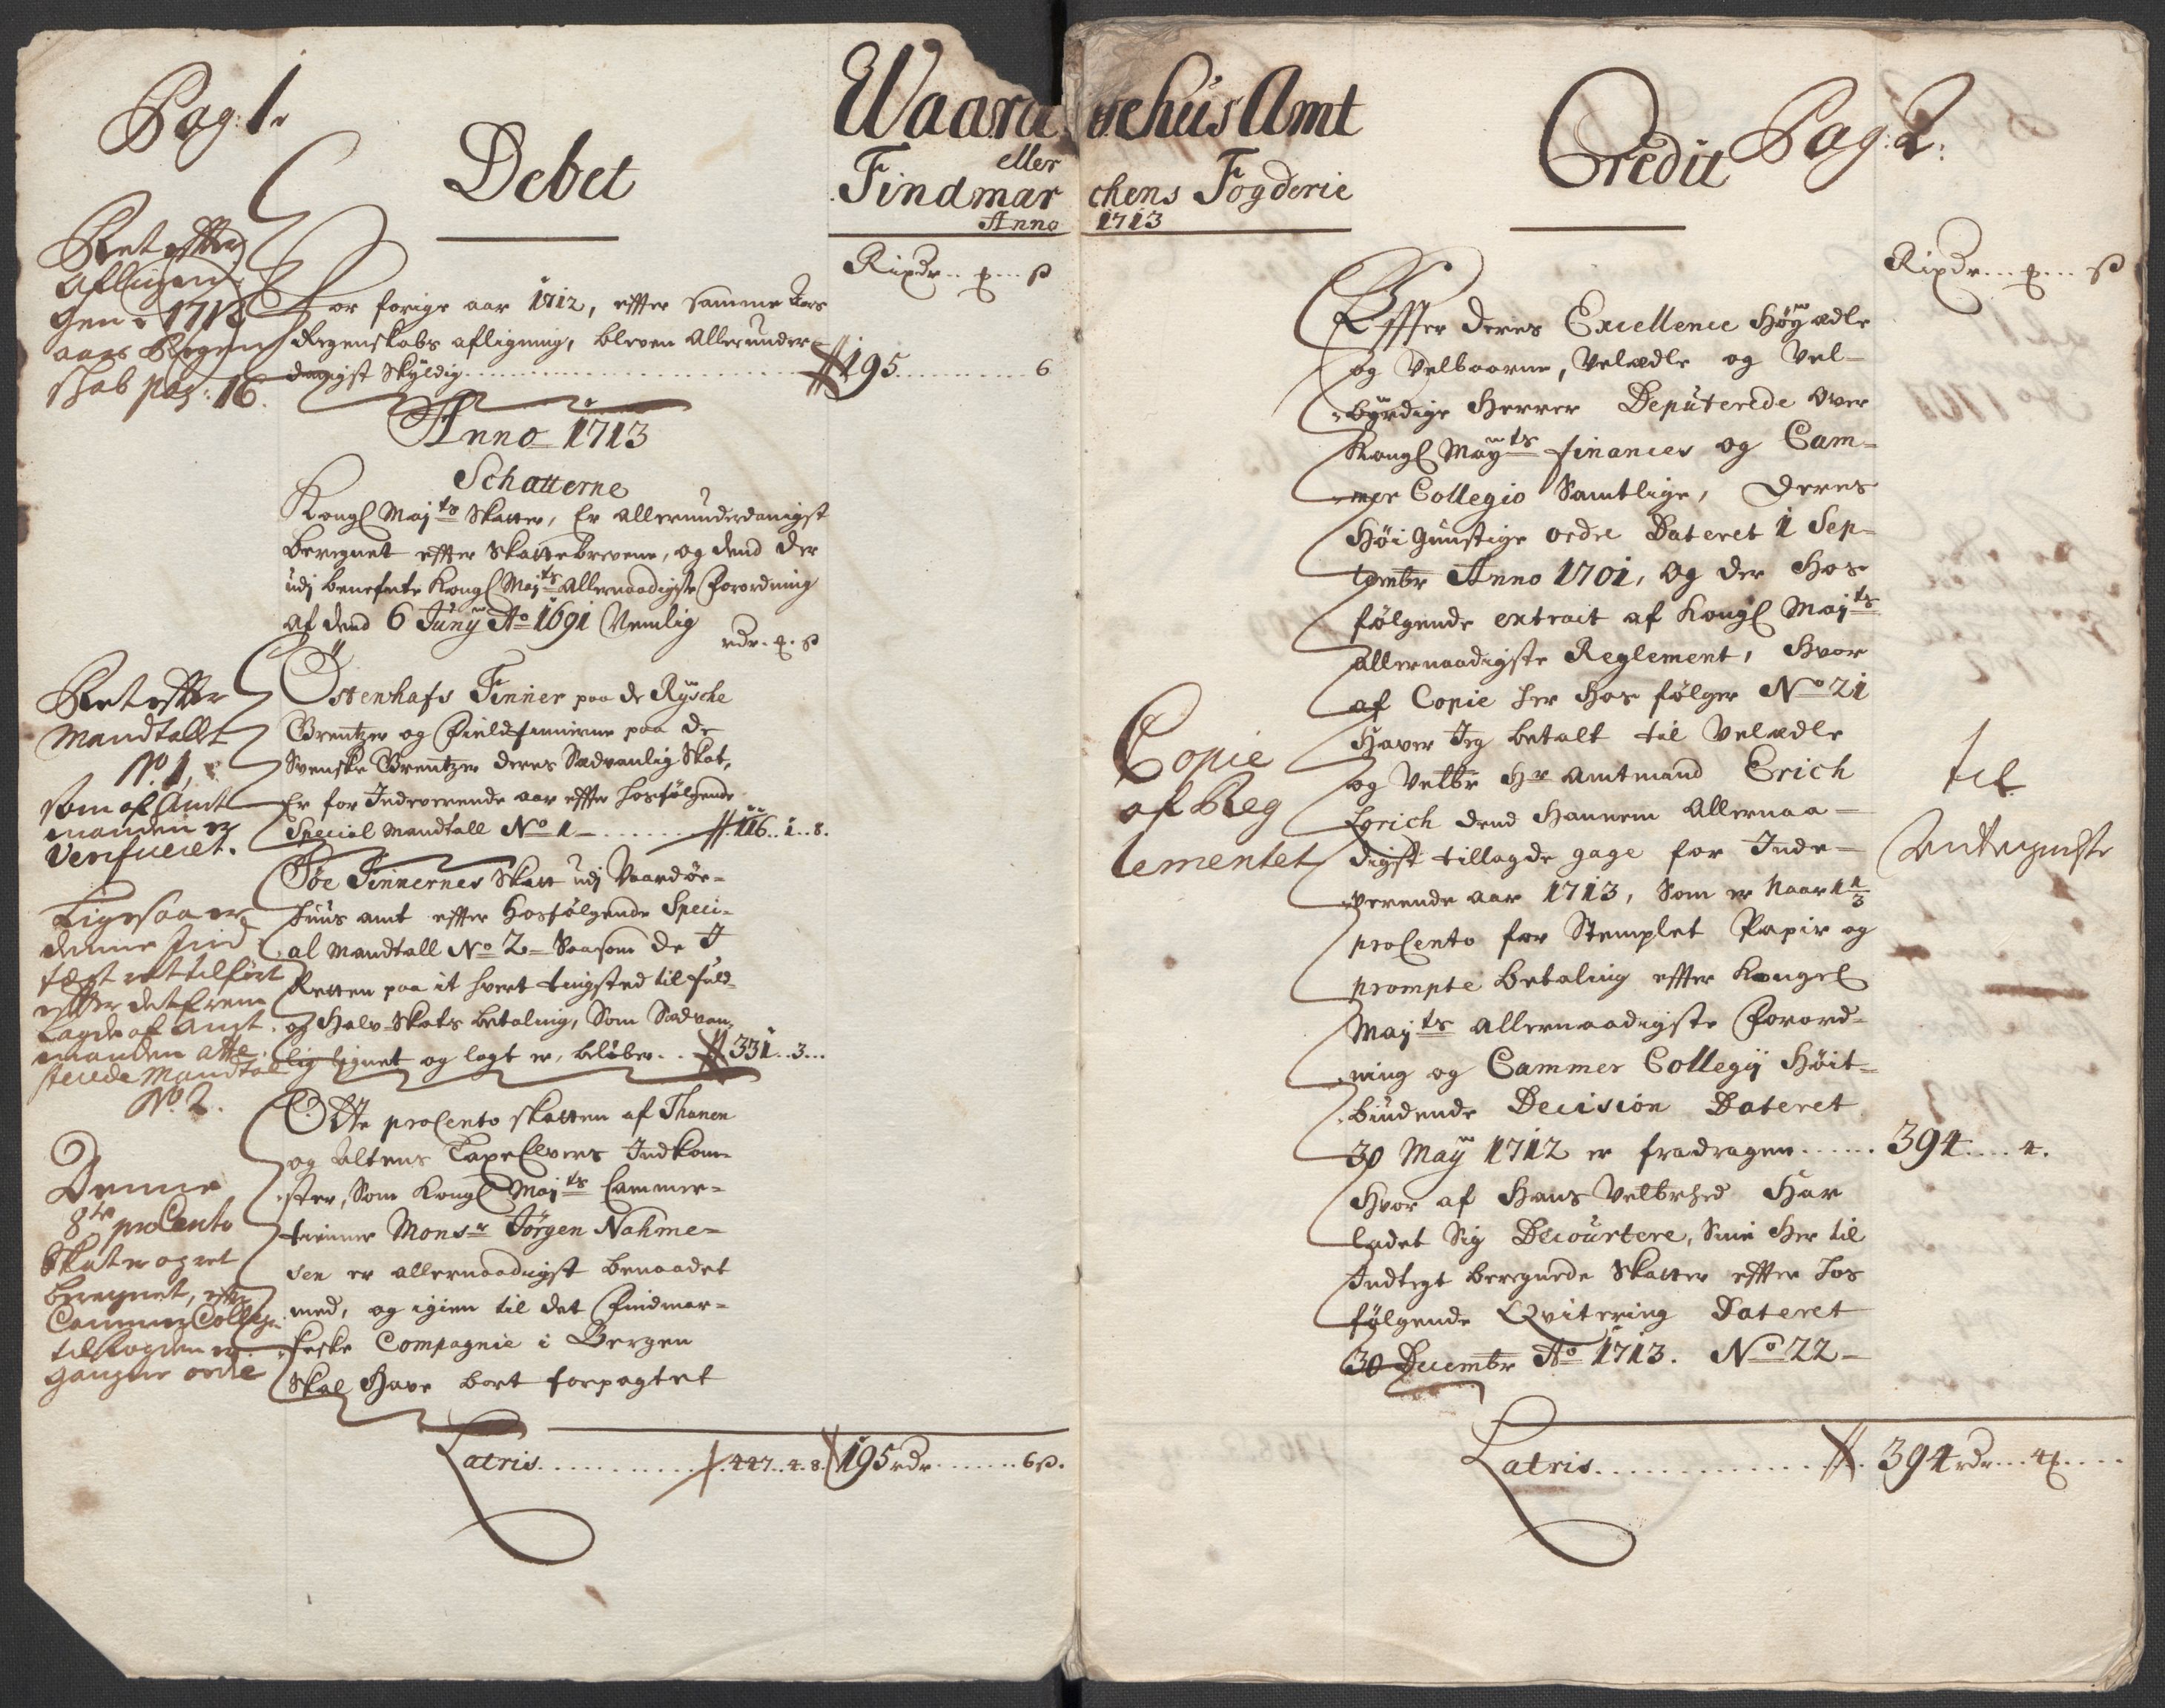 Pag: 1.
Debet
Waardøehuus Amt
eller
Findmarchens Fogderie
Anno 1713
Rixdr .. ₰ ... ß
Ret effter
aflign
gen i 1712
aars Regen
schab pag: 16.
For forige aar 1712, effter samme Aars
Regenskabs afligning, bleven Allerunder-
danigst Skyldig ............ 195 ......... 6
Anno 1713
Schatterne
Kongl Maj:ts Skatter, Er allerunderdanigst
beregnet effter Skattebrevene, og dend der
udj benefnte Kongl Maj:ts Allernaadigste Forordning
af dend 6 Junÿ Ao 1691 Nemlig
rdr. ₰. ß
Ret effter
Mandtallet
No. 1,
som af Amt
manden er
Verificeret.
Östenhafs Finner paa de Rÿsche
Grentzer og Fieldfinnerne paa de
Svenske Grentzer deres Sædvanlig Skat,
Er for Indeverende aar effter hosfølgende
Special Mandtall No 1 - ....... 116 .. 1 .. 8.
Ligesaa er
denne Ind
tægt ret tilført
effter det frem
lagde af Amt
manden atte
sterede Mandtal
No. 2.
Søe Finnernes Skatt udj Vaardøe-
huus amt effter hosfølgende Speci-
al Mandtall No 2 - Saasom de J
Retten paa it hvert tingsted til fuld
og Halv Skats betaling, Som Sædvan-
lig lignet og lagt er, beløber .. 331 .. 3 ...
Denne
8te proCento
Skat er og ret
beregnet, effter
Cammer Collegi
til fogden er
gangne ordre
Otte proCento skatten af Thanen
og Altens Laxe Elvers Indkom-
ster, Som Kongl Maj:ts Cammer-
tienner Monsr Jörgen Nahme-
sen er allernaadigst benaadet
med, og igien til det Findmar-
keske Compagnie i Bergen
Skal Have bort forpagtet
Latris ............ 447 .. 4 .. 8. 195 rdr ....... 6 ß.
Credit
Pag: 2.
Rixdr ... ₰ ... ß
Effter Deres Excellence Høÿædle
og Velbaarne, Velædle og Vel-
bÿrdige Herrer Deputerede Over
Kongl Maÿ:ts finances og Cam-
mer Collegio Samtlige, Deres
Höi Gunstige ordre Dateret 1 Sep-
tembr Anno 1701, Og der Hos
følgende extract af Kongl Maj:ts
allernaadigste Reglement, Hvor
af Copie her Hos følger No 21
Haver Jeg betalt til Velædle
og Velbr Hr Amtmand Erich
Lorich dend Hannem Allernaa-
digst tillagde gage for Inde-
verende aar 1713, Som er Naar 1 1/3
proCento for Stemplet Papir og
prompte betaling effter Kongel
Maj:ts allernaadigste Forord-
ning og Cammer Collegÿ Höit-
bindende Decision Dateret
30 Maÿ 1712 er fradragen ...... 394 .... 4.
Hvor af Hans Velbrhed Har
ladet Sig Decourtere, Sine Her til
Indtegt beregnede Skatter effter hos
følgende Qvitering Dateret
30 Decembr Ao 1713. No 22 -
Copie
af Reg
lementet
til
Latris ............ 394 rdr ... 4 ₰ ....